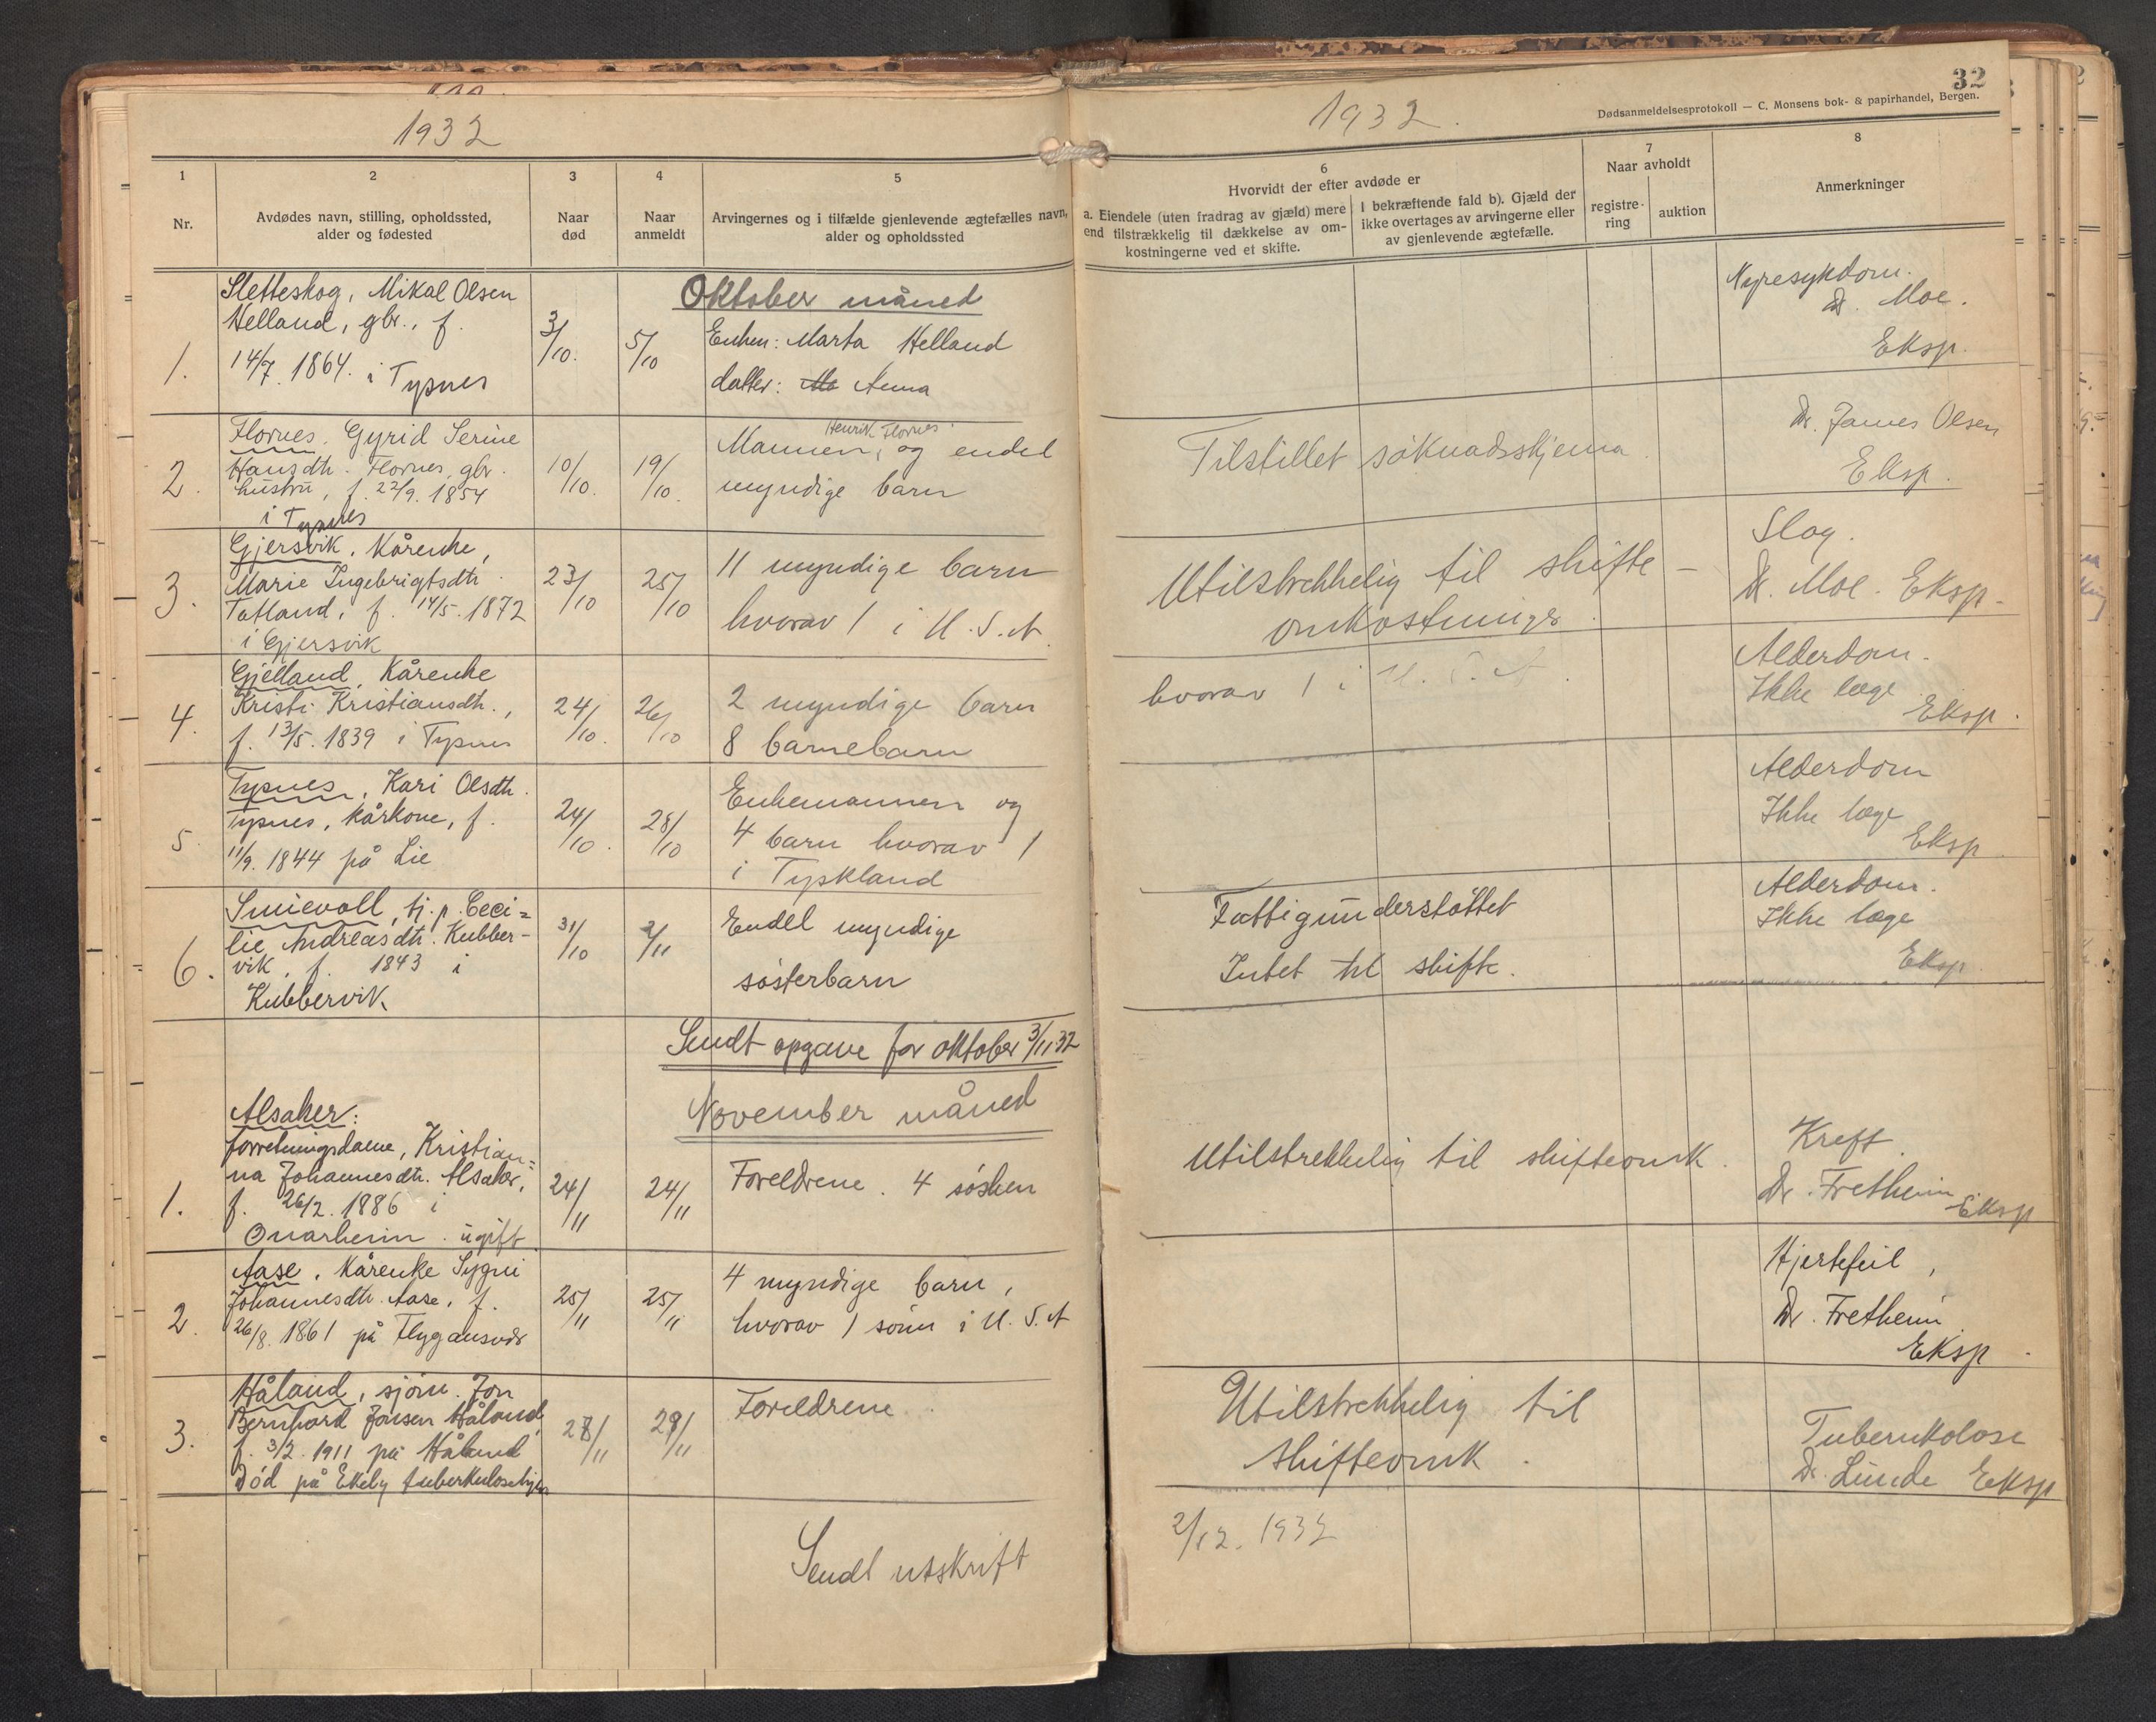 1932
1
2
3
4
5
Nr.
Avdødes navn, stilling, opholdssted,
alder og fødested
Naar
død
Naar
anmeldt
Arvingernes og i tilfælde gjenlevende ægtefælles navn,
alder og opholdssted
Oktober måned
1.
Sletteskog, Mikal Olsen
Helland, gbr., f.
14/7. 1864. i Tysnes
3/10.
5/10
Enken: Marta Helland
datter: Anna
2.
Flornes, Gyrid Serine
Hansdtr. Flornes, gbr.
hustru, f. 22/9. 1854
i Tysnes
10/10.
19/10.
Henrik Flornes
Mannen, og endel
myndige barn
3.
Gjersvik, Kårenke,
Marie Ingebrigtsdtr.
Tatland, f. 14/5. 1872
i Gjersvik
23/10
25/10
11 myndige barn
hvorav 1 i U.S.A.
4.
Gjelland, Kårenke
Kristi Kristiansdtr.,
f. 13/5. 1839 i Tysnes
24/10.
26/10
2 myndige barn
8 barnebarn
5
Tysnes, Kari Olsdtr.
Tysnes, kårkone, f.
11/9. 1844 på Lie
24/10.
28/10
Enkemannen og
4 barn hvorav 1
i Tyskland
6.
Smievoll, tj.p. Ceci=
lie Andreasdtr. Kubber-
vik, f. 1843 i
Kubbervik
31/10
2/11
Endel myndige
søsterbarn
Sendt opgave for oktober 3/11 32
November måned
1.
Alsaker:
forretningsdame, Kristian=
na Johannesdtr. Alsaker,
f. 26/2. 1886 i
Onarheim. ugift
24/11
24/11
Foreldrene. 4 søsken
2.
Aase, Kårenke Sygni
Johannesdtr. Aase, f.
26/8. 1861 på Flygansvær
25/11
25/11
4 myndige barn,
hvorav 1 sønn i U.S.A
3.
Håland, sjøm. Jon
Bernhard Jonsen Håland,
f. 3/2. 1911 på Håland
Død på Ekeby tuberkulosehjem
28/11
29/11
Foreldrene
Sendt utskrift
32
1932.
Dødsanmeldelsesprotokoll — C. Monsens bok- & papirhandel, Bergen.
6
Hvorvidt der efter avdøde er
a. Eiendele (uten fradrag av gjæld) mere
end tilstrækkelig til dækkelse av om-
kostningerne ved et skifte.
I bekræftende fald b). Gjæld der
ikke overtages av arvingerne eller
av gjenlevende ægtefælle.
7
Naar avholdt
registre-
ring
auktion
8
Anmerkninger
Nyresykdom.
Dr. Moe.
Eksp.
Tilstillet søknadsskjema.
Dr. James Olsen
Eksp.
Utilstrekkelig til skifte-
omkostninger.
Slag.
Dr. Moe. Eksp.
hvorav 1 i U.S.A.
Alderdom.
Ikke læge
Eksp.
Alderdom
Ikke læge
Eksp
Fattigunderstøttet
Intet til skifte.
Alderdom.
Ikke læge
Eksp
Utilstrekkelig til skifteomk.
Kreft
Dr. Fretheim
Eksp
Hjertefeil,
Dr. Fretheim
Eksp.
Utilstrekkelig til
skifteomk.
Tuberkolose
Dr. Linde Eksp
2/12. 1932